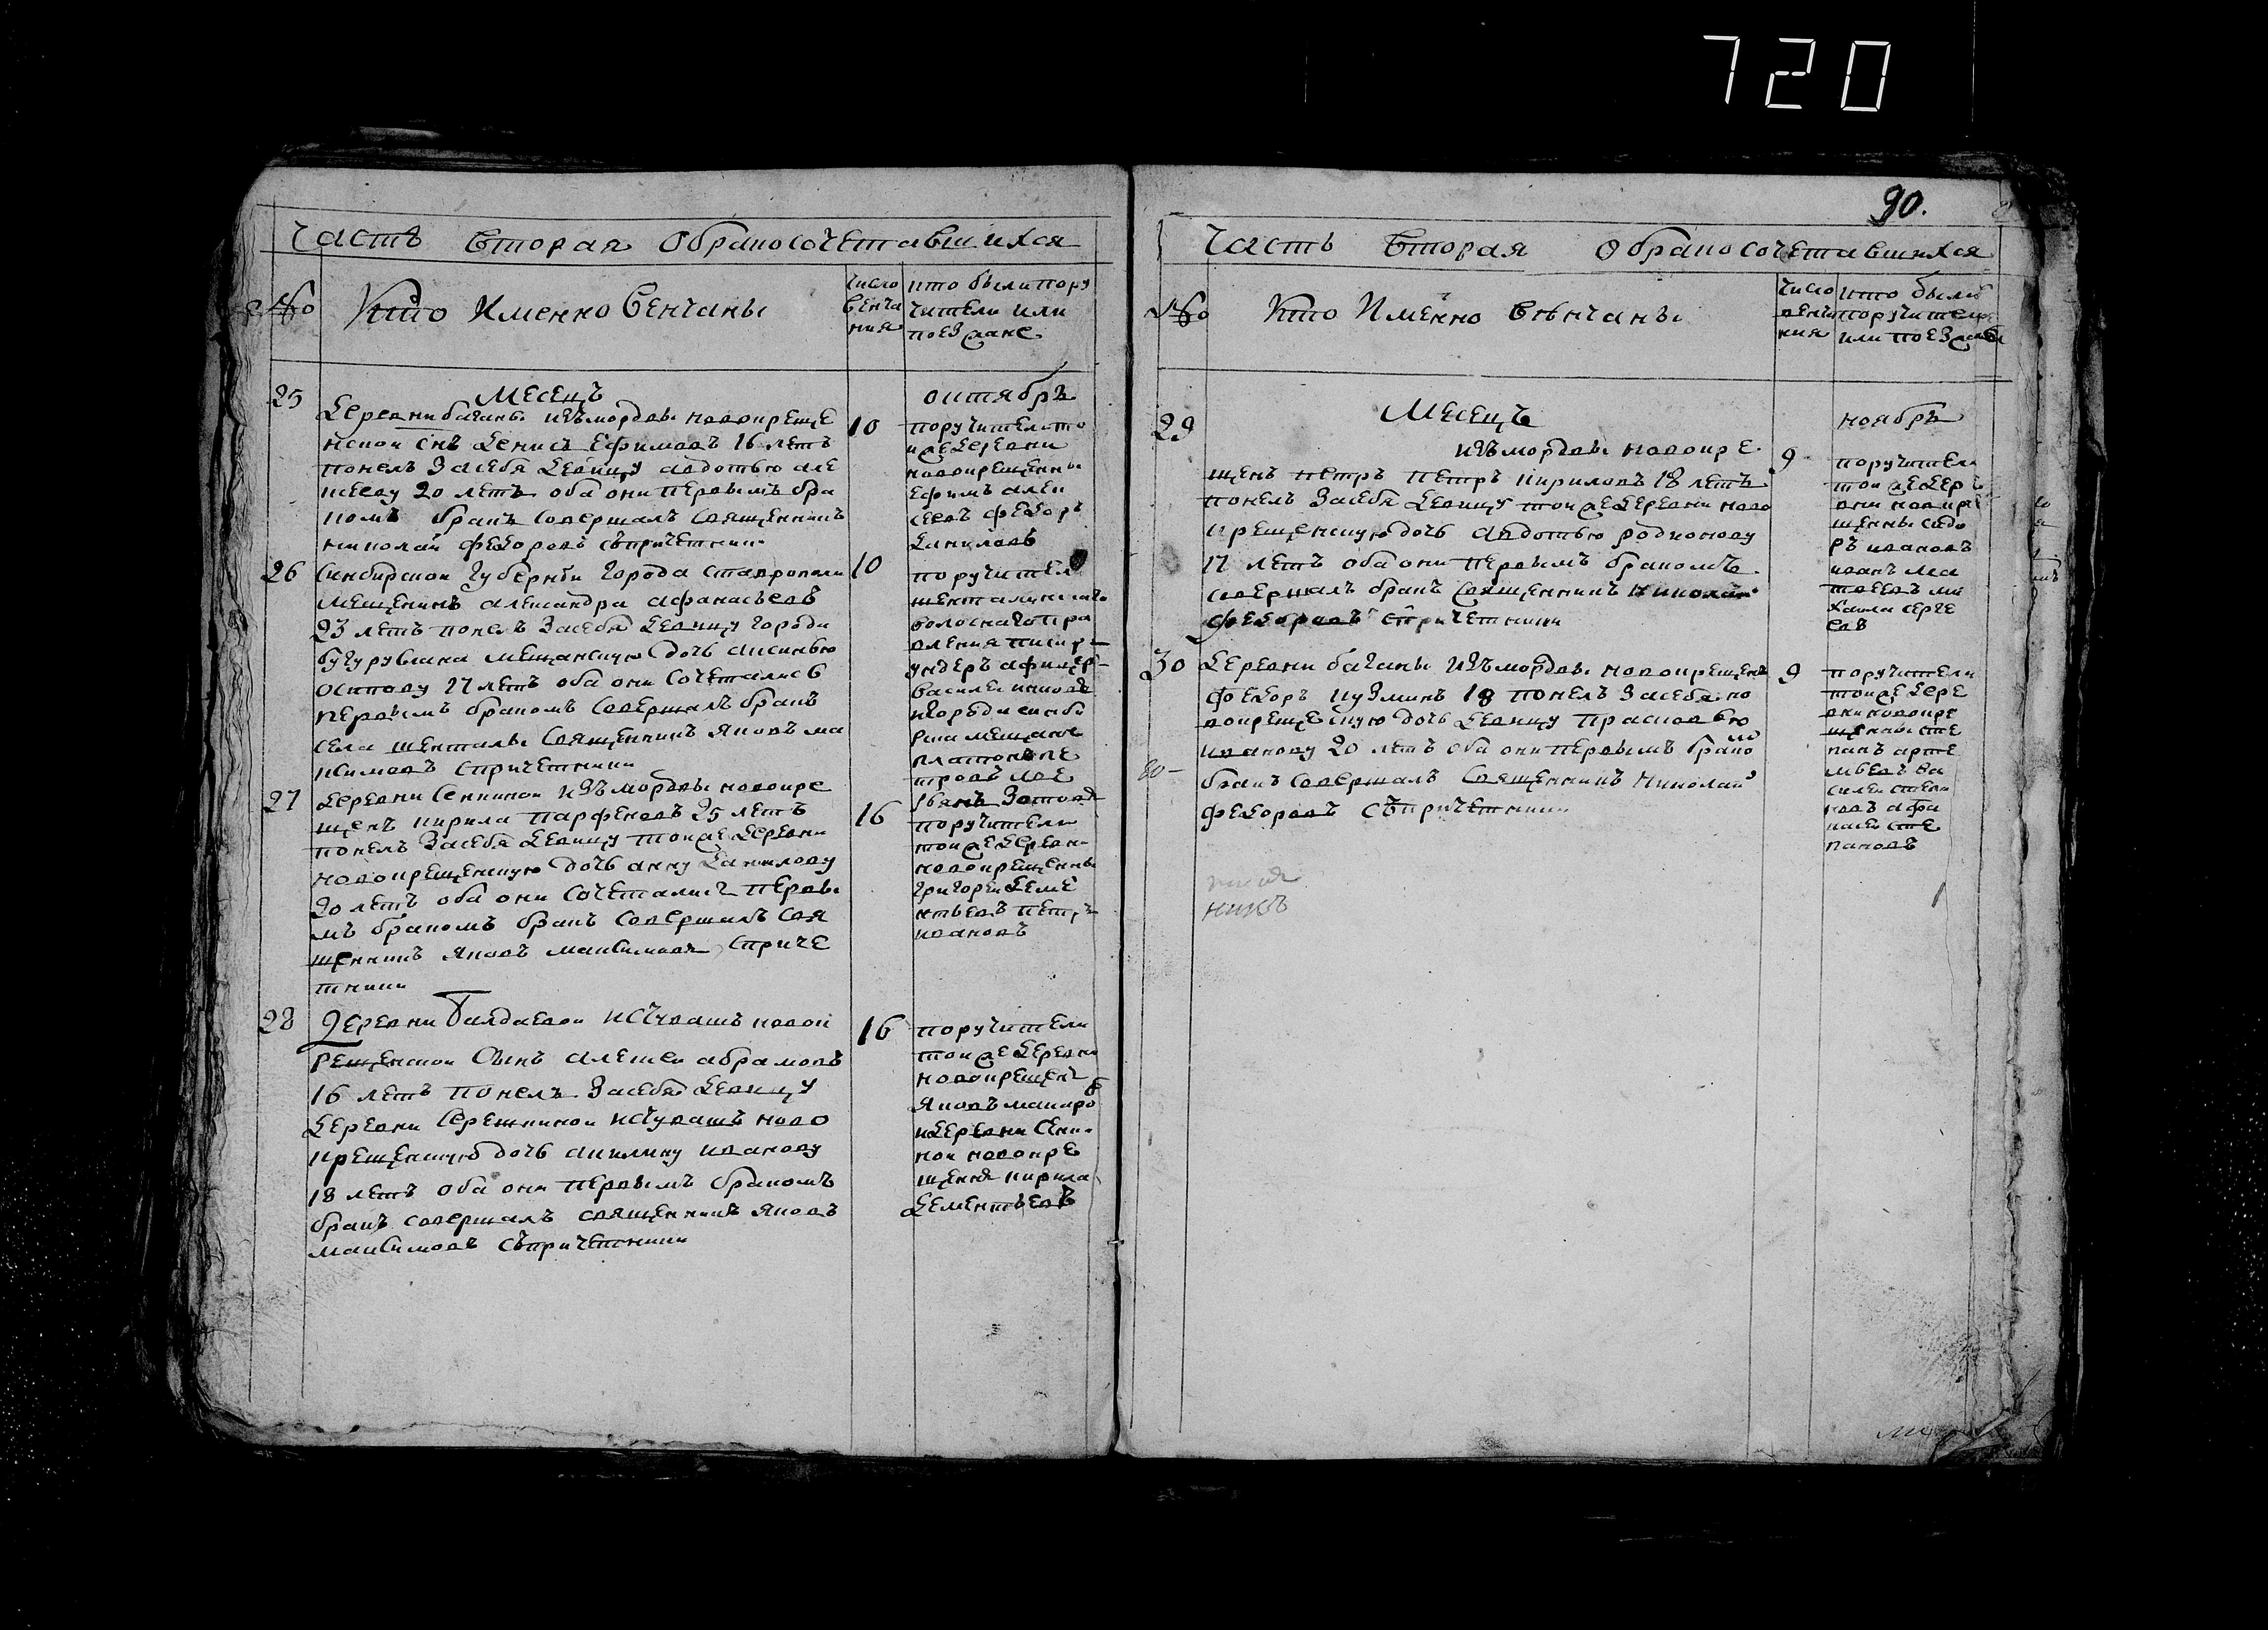 720
90.
Часть вторая о бракосочетавшихся
№
Кто Именно Венчаны
число венча ния
кто были пору
чители или
поезжане
Месецъ
октябрь
25
Деревни баганы изъ мордвы новокреще
нской снъ Денисъ Ефимовъ 16 летъ
понелъ засебя девицу авдотью але
ксеву 20 летъ оба они первымъ бра
комъ бракъ совершалъ священникъ
николай федоровъ спричетники
10
поручители то
иже деревни
новокрещены
Ефимъ алек
сеевъ федоръ
даниловъ
26
Синбирской губернїи города ставрополя
мещенинъ александра афанасьевъ
23 летъ понелъ засебя девицу города
бугуруслана мещанскую дочь аксинью
осипову 17 летъ оба они сочетались
первымъ бракомъ совершалъ бракъ
села шенталы священникъ яковъ ма
ксимовъ спричетники
10
поручители
шенталинскаго
волоснаго пра
вления писарь
ундеръ афицер
василеи
мещане
27
деревни сенкиной изъ мордвы новокре
щенъ кирила парфеновъ 25 летъ
понелъ засебя девицу тоиже деревни
новокрещенскую дочь анну данилову
20 летъ оба они сочетались первы
мъ бракомъ бракъ совершилъ свя
щенникъ яковъ максимовъ спричє
тники
16
поручители
тоиже деревни
новокрещены
григореи деме
нтьевъ петръ
ивановъ
28
Деревни Балдаевой исчувашъ новок
рещенской сынъ алексеи абрамовъ
16 летъ понелъ засебя девицу
деревни Серешкиной исчувашъ ново
крещенскую дочь акилину иванову
18 летъ оба они первымъ бракомъ
бракъ совершалъ священникъ яковъ
максимовъ съпричетники
16
поручители
тоиже деревни
новокрещенъ
яковъ макаро
идеревни сенки
ной новокре
щенъ кирила
дементьевъ
Часть Вторая о бракосочетавшихся
№
Кто Именно Венчаны
число венча ния
кто были
поручители
или поезжане
Месецъ
ноябрь
29
изъ мордвы новокре
щенъ петръ петръ кириловъ 18 летъ
понелъ засебя девицу тоиже деревни ново
крещенскую дочь авдотью родионову
17 летъ оба они первымъ бракомъ
совершалъ бракъ священникъ николай
федоровъ спричетники
9
поручители
тоиже дере
вни новокре
щены сидо
ръ ивановъ
иванъ ма
твеевъ ми
хаила серге
евъ
30
деревни баганы изъ мордвы новокрещенъ
федоръ кузминъ 18 понелъ засебя но
вокрещенскую дочь девицу прасковью
иванову 20 летъ оба они первымъ бракомъ
бракъ совершалъ священникъ Николай
федоровъ съпричетники
9
поручители
тоиже дере
вни новокре
щены сте
панъ арте
мьевъ ва
силеи степа
новъ афа
насеи сте
пановъ